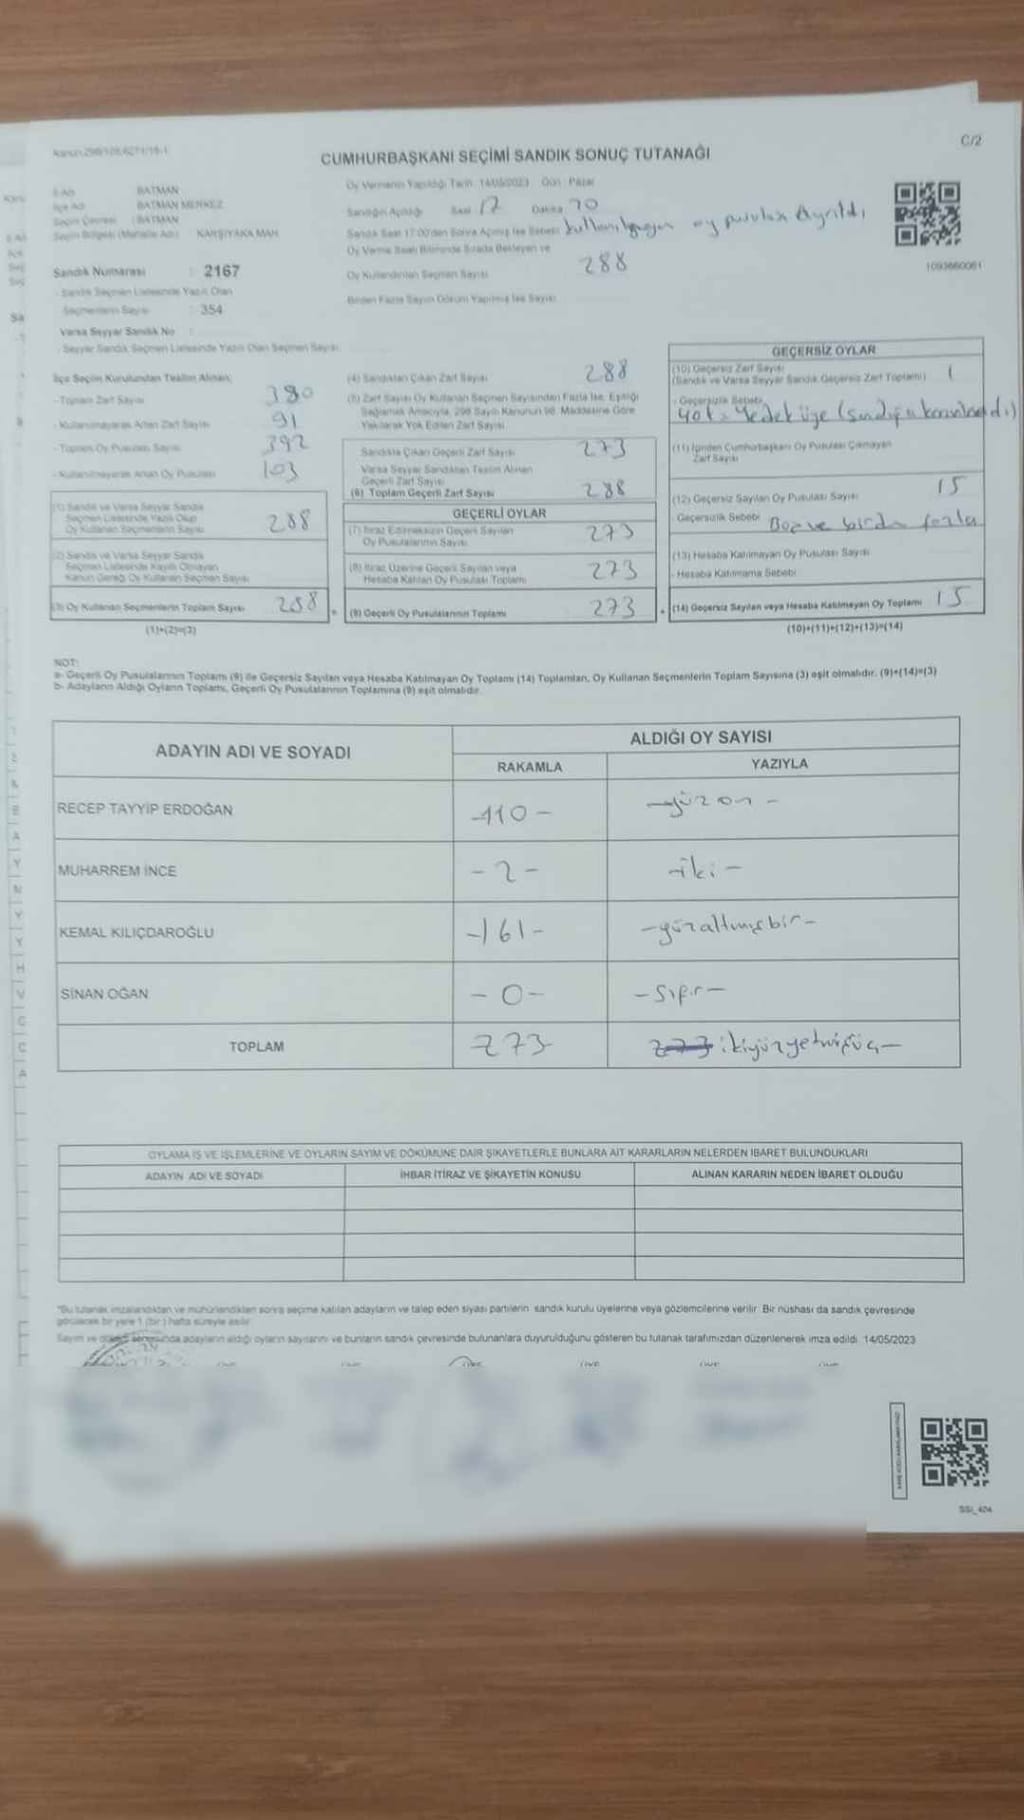 C/2
CUMHURBAŞKANI SEÇİMİ SANDIK SONUÇ TUTANAĞI
Oy Vermenin Yapıldığı Tarih 14/05/2023 Gün Pazar
İl Adı BATMAN
İlçe Adı BATMAN MERKEZ
Seçim Çevresi : BATMAN
Seçim Bölgesi (Mahalle Adı) KARŞIYAKA MAH.
Sandığın Açıldığı Saat 17 Dakika
Sandık Saat 17:00'den Sonra Açılmış İse Sebebi oy pusulası Ayrıldı
Oy Verme Saati Bitiminde Sırada Bekleyen ve
Oy Kullandırılan Seçmen Sayısı 288
Birden Fazla Sayım Döküm Yapılmış İse Sayısı
1093660061
Sandık Numarası : 2167
- Sandık Seçmen Listesinde Yazılı Olan
Seçmenlerin Sayısı : 354
Varsa Seyyar Sandık No :
- Seyyar Sandık Seçmen Listesinde Yazılı Olan Seçmen Sayısı
İlçe Seçim Kurulundan Teslim Alınan;
-Toplam Zarf Sayısı 380
- Kullanılmayarak Artan Zarf Sayısı 91
- Toplam Oy Pusulası Sayısı 392
- Kullanılmayarak Artan Oy Pusulası 103
(1) Sandık ve Varsa Seyyar Sandık
Seçmen Listesinde Yazılı Olup
Oy Kullanan Seçmenlerin Sayısı 288
(2) Sandık ve Varsa Seyyar Sandık
Seçmen Listesinde Kayıtlı Olmayan
Kanun Gereği Oy Kullanan Seçmen Sayısı
(3) Oy Kullanan Seçmenlerin Toplam Sayısı 288
(1)+(2)=(3)
(4) Sandıktan Çıkan Zarf Sayısı 288
(5) Zarf Sayısı Oy Kullanan Seçmen Sayısından Fazla İse, Eşitliği
Sağlamak Amacıyla, 298 Sayılı Kanunun 98. Maddesine Göre
Yakılarak Yok Edilen Zarf Sayısı
Sandıkta Çıkan Geçerli Zarf Sayısı 273
Varsa Seyyar Sandıktan Teslim Alınan
Geçerli Zarf Sayısı
(6) Toplam Geçerli Zarf Sayısı 288
GEÇERLİ OYLAR
(7) İtiraz Edilmeksizin Geçerli Sayılan
Oy Pusulalarının Sayısı 273
(8) İtiraz Üzerine Geçerli Sayılan veya
Hesaba Katılan Oy Pusulası Toplamı 273
(9) Geçerli Oy Pusulalarının Toplamı 273
GEÇERSİZ OYLAR
(10) Geçersiz Zarf Sayısı
(Sandık ve Varsa Seyyar Sandık Geçersiz Zarf Toplamı) 1
- Geçersizlik Sebebi
Yedek üye
(11) İçinden Cumhurbaşkanı Oy Pusulası Çıkmayan
Zarf Sayısı
(12) Geçersiz Sayılan Oy Pusulası Sayısı 15
Geçersizlik Sebebi Boş ve birden fazla
(13) Hesaba Katılmayan Oy Pusulası Sayısı
- Hesaba Katılmama Sebebi
(14) Geçersiz Sayılan veya Hesaba Katılmayan Oy Toplamı 15
(10)+(11)+(12)+(13)=(14)
NOT:
a- Geçerli Oy Pusulalarının Toplamı (9) ile Geçersiz Sayılan veya Hesaba Katılmayan Oy Toplamı (14) Toplamları, Oy Kullanan Seçmenlerin Toplam Sayısına (3) eşit olmalıdır. (9)+(14)=(3)
b- Adayların Aldığı Oyların Toplamı, Geçerli Oy Pusulalarının Toplamına (9) eşit olmalıdır.
ADAYIN ADI VE SOYADI ALDIĞI OY SAYISI
RAKAMLA YAZIYLA
RECEP TAYYİP ERDOĞAN -110- -yüzon-
MUHARREM İNCE -2- -iki-
KEMAL KILIÇDAROĞLU -161- -yüzaltmışbir-
SİNAN OĞAN -0- -sıfır-
TOPLAM 273 273 ikiyüzyetmişüç-
OYLAMA İŞ VE İŞLEMLERİNE VE OYLARIN SAYIM VE DÖKÜMÜNE DAİR ŞİKAYETLERLE BUNLARA AİT KARARLARIN NELERDEN İBARET BULUNDUKLARI
ADAYIN ADI VE SOYADI İHBAR İTİRAZ VE ŞİKAYETİN KONUSU ALINAN KARARIN NEDEN İBARET OLDUĞU
*Bu tutanak imzalandıktan ve mühürlendikten sonra seçime katılan adayların ve talep eden siyasi partilerin sandık kurulu üyelerine veya gözlemcilerine verilir. Bir nüshası da sandık çevresinde
görülecek bir yere 1 (bir) hafta süreyle asılır.
Sayım ve döküm sonucunda adayların aldığı oyların sayılarını ve bunların sandık çevresinde bulunanlara duyurulduğunu gösteren bu tutanak tarafımızdan düzenlenerek imza edildi. 14/05/2023